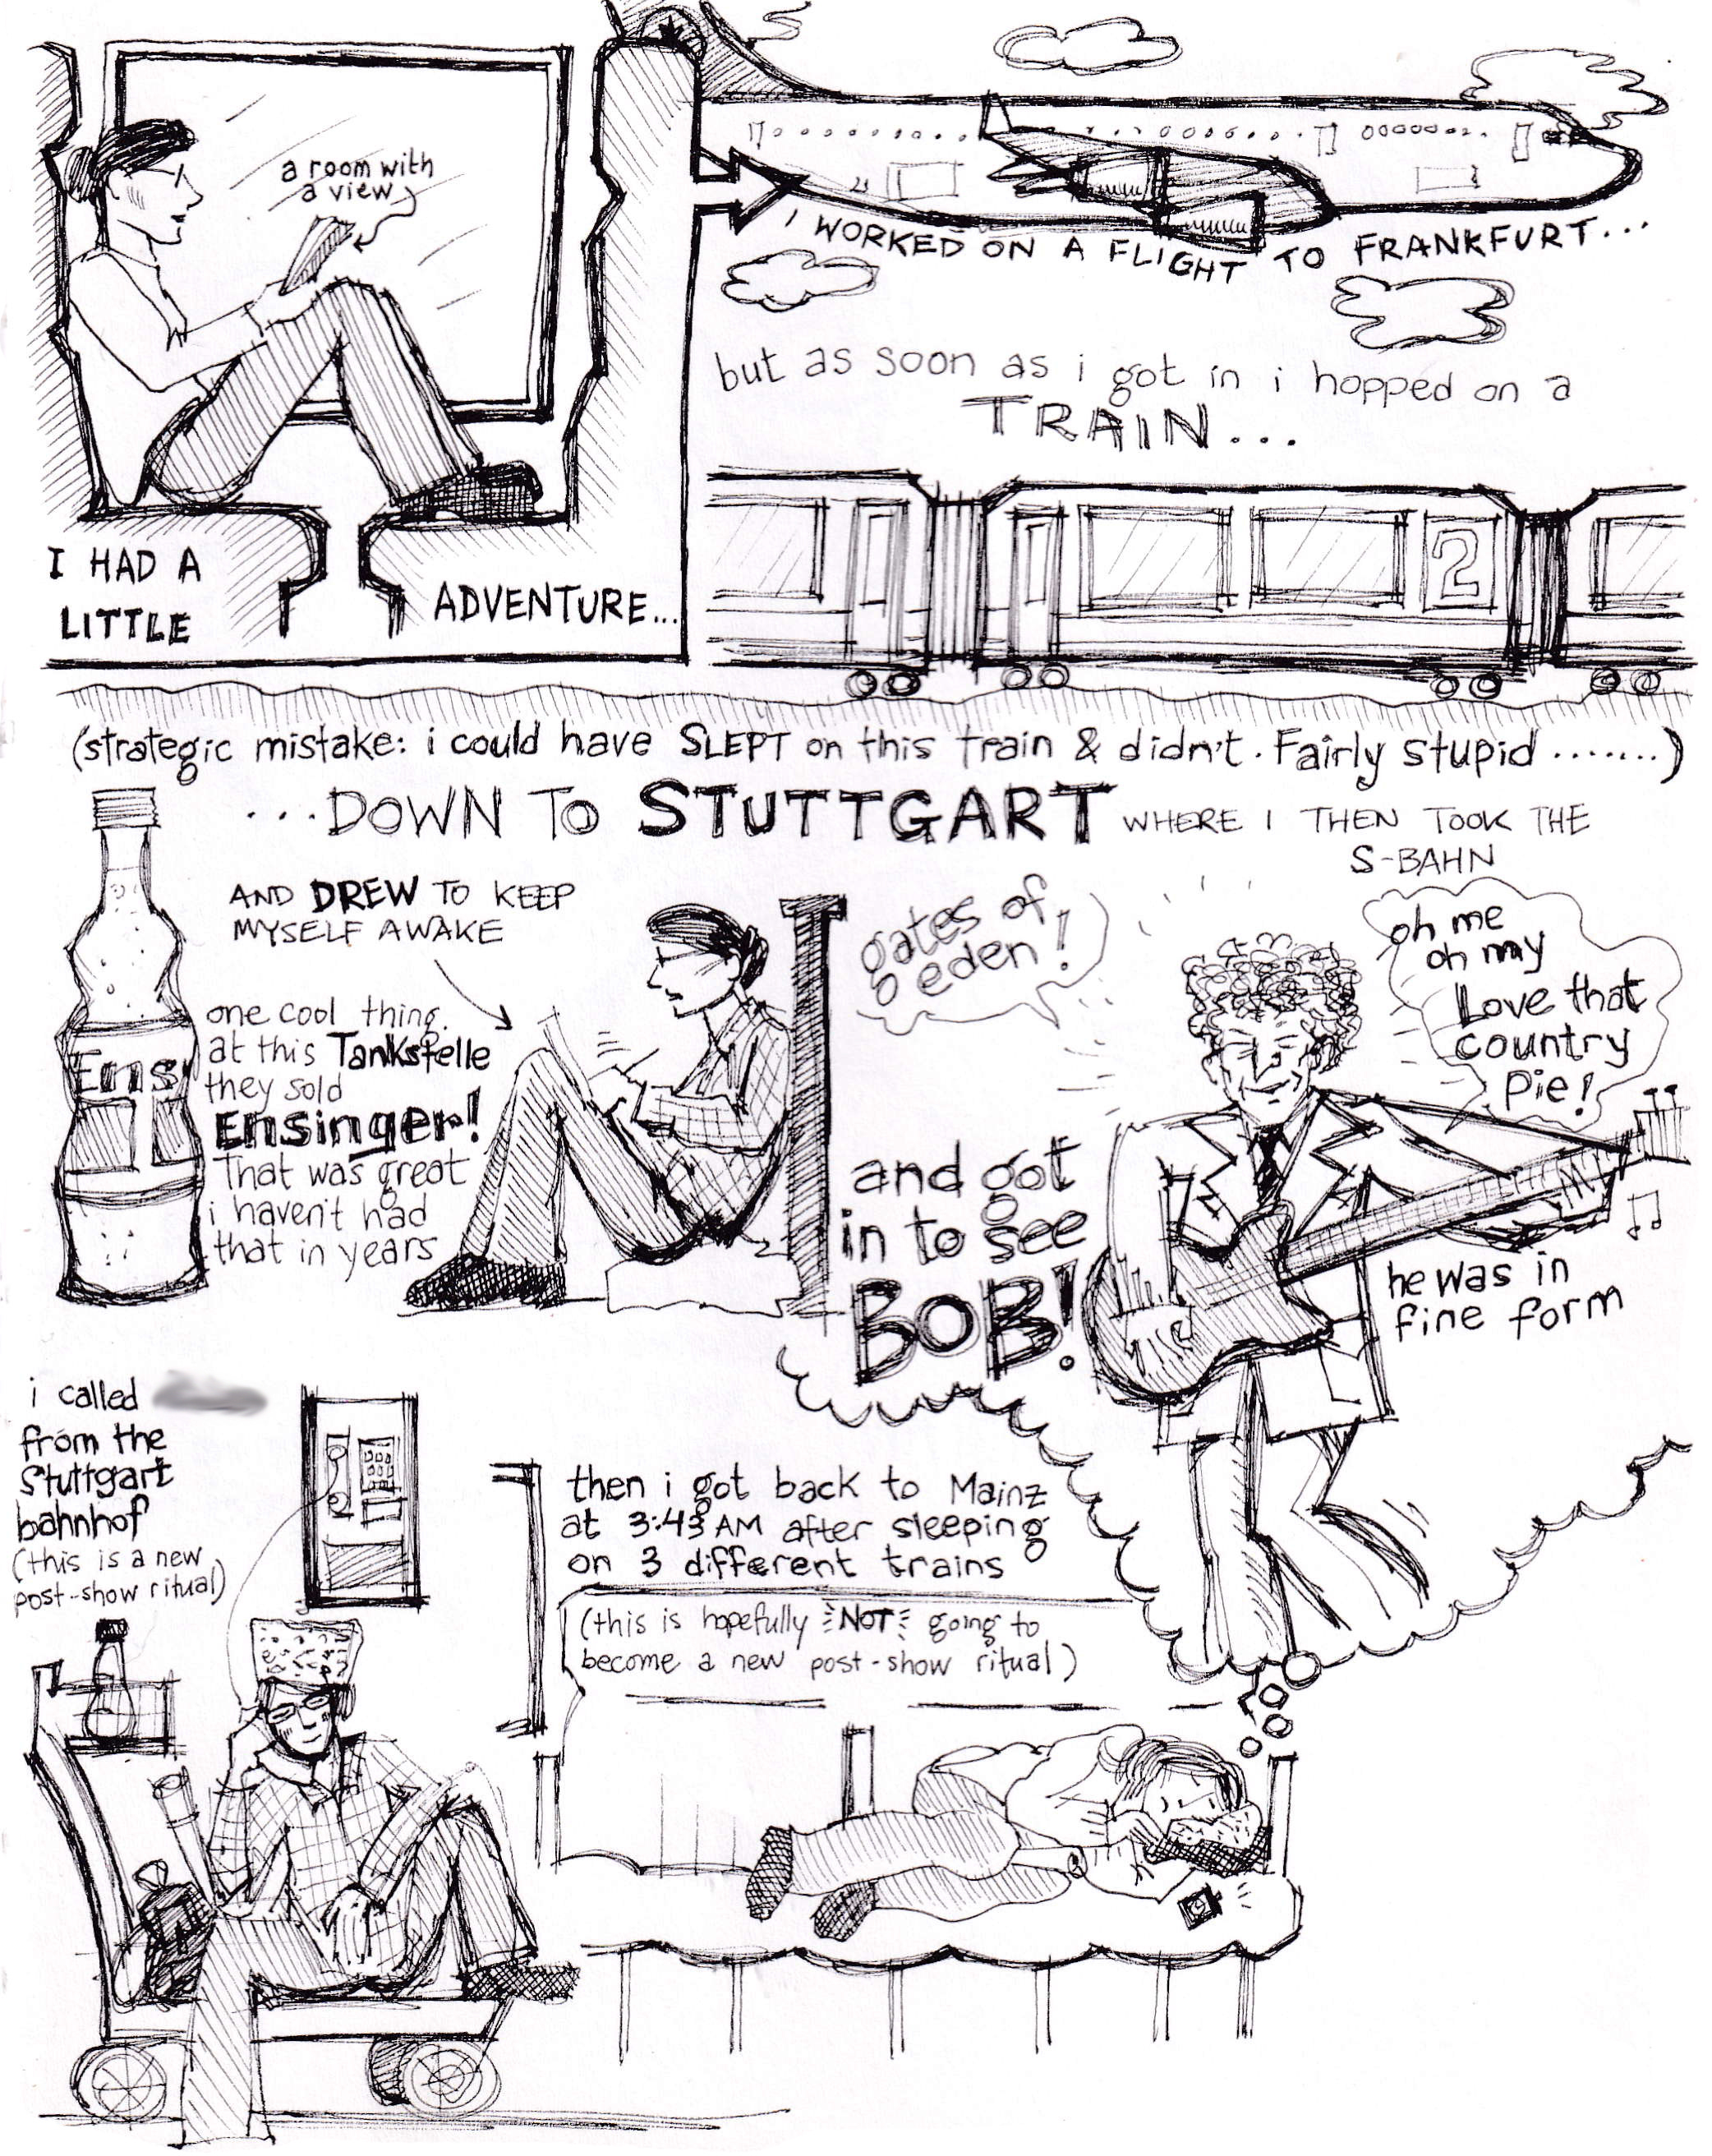 a room with
a view
I HAD A
LITTLE
ADVENTURE...
I WORKED ON A FLIGHT TO FRANKFURT...
but as soon as i got in i hopped on a
TRAIN...
2
(strategic mistake: i could have SLEPT on this train & didn't. Fairly stupid .......)
...DOWN TO STUTTGART WHERE I THEN TOOK THE
S-BAHN
AND DREW TO KEEP
MYSELF AWAKE
Ens
one cool thing.
at this Tankstelle
they sold
Ensinger!
That was great
i haven't had
that in years
gates of
eden!
oh me
oh my
Love that
country
pie!
and got
in to see
BOB!
he was in
fine form
i called
from the
Stuttgart
bahnhof
(this is a new
post-show ritual)
then i got back to Mainz
at 3:43 AM after sleeping
on 3 different trains
(this is hopefully NOT going to
become a new post-show ritual)